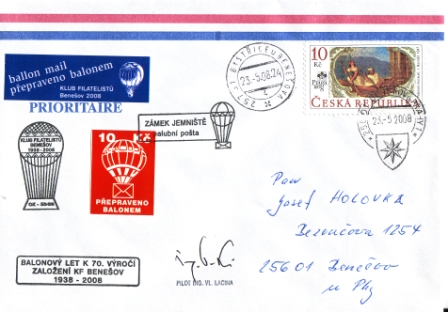 ballon mail
přepraveno balonem
KLUB FILATELISTŮ
Benešov 2008
PRIORITAIRE
257 51 BYSTŘICE U BENEŠOVA
23.-5.08.24
10
Kč
ČESKÁ REPUBLIKA
23.-5 2008
ZÁMEK JEMNIŠTĚ
balubní pošta
KLUB FILATELISTŮ
BENEŠOV
1938-2008
10 Kč
PŘEPRAVENO
BALONEM
Pan
Josef HOLOVKA
1254
25601 Benešov
u Phy
BALONOVÝ LET K 70. VÝROČÍ
ZALOŽENÍ KF BENEŠOV
1938 - 2008
PILOT ING. VL. LACINA